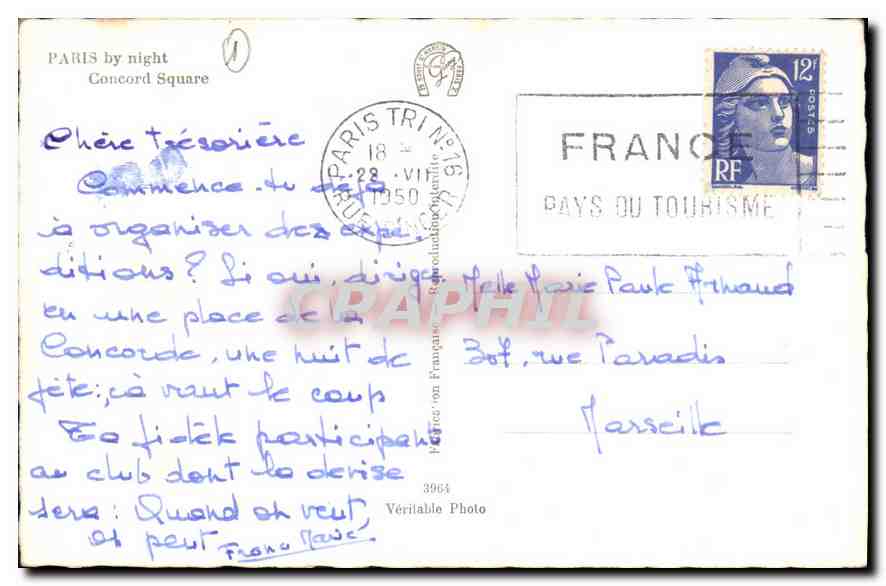 PARIS by night
Concord Square
1
12F
POSTES
RF
PARIS TRI Nº 16
18
22 · VII
1950
FRANCE
PAYS DU TOURISME
Chère trésorière
Commence-tu déjà
à organiser des expé-
ditions? Si oui, dirige
en une place de la
Concorde, une nuit de
fête: çà vaut le coup
Ta fidèle participante
au club dont la devise
sera: Quand on veut,
on peut
Melle Marie Paule Arnaud
307, rue Paradis
Marseille
CPAPHIL
Fabrication Française - Reproduction Interdite
3964
Véritable Photo